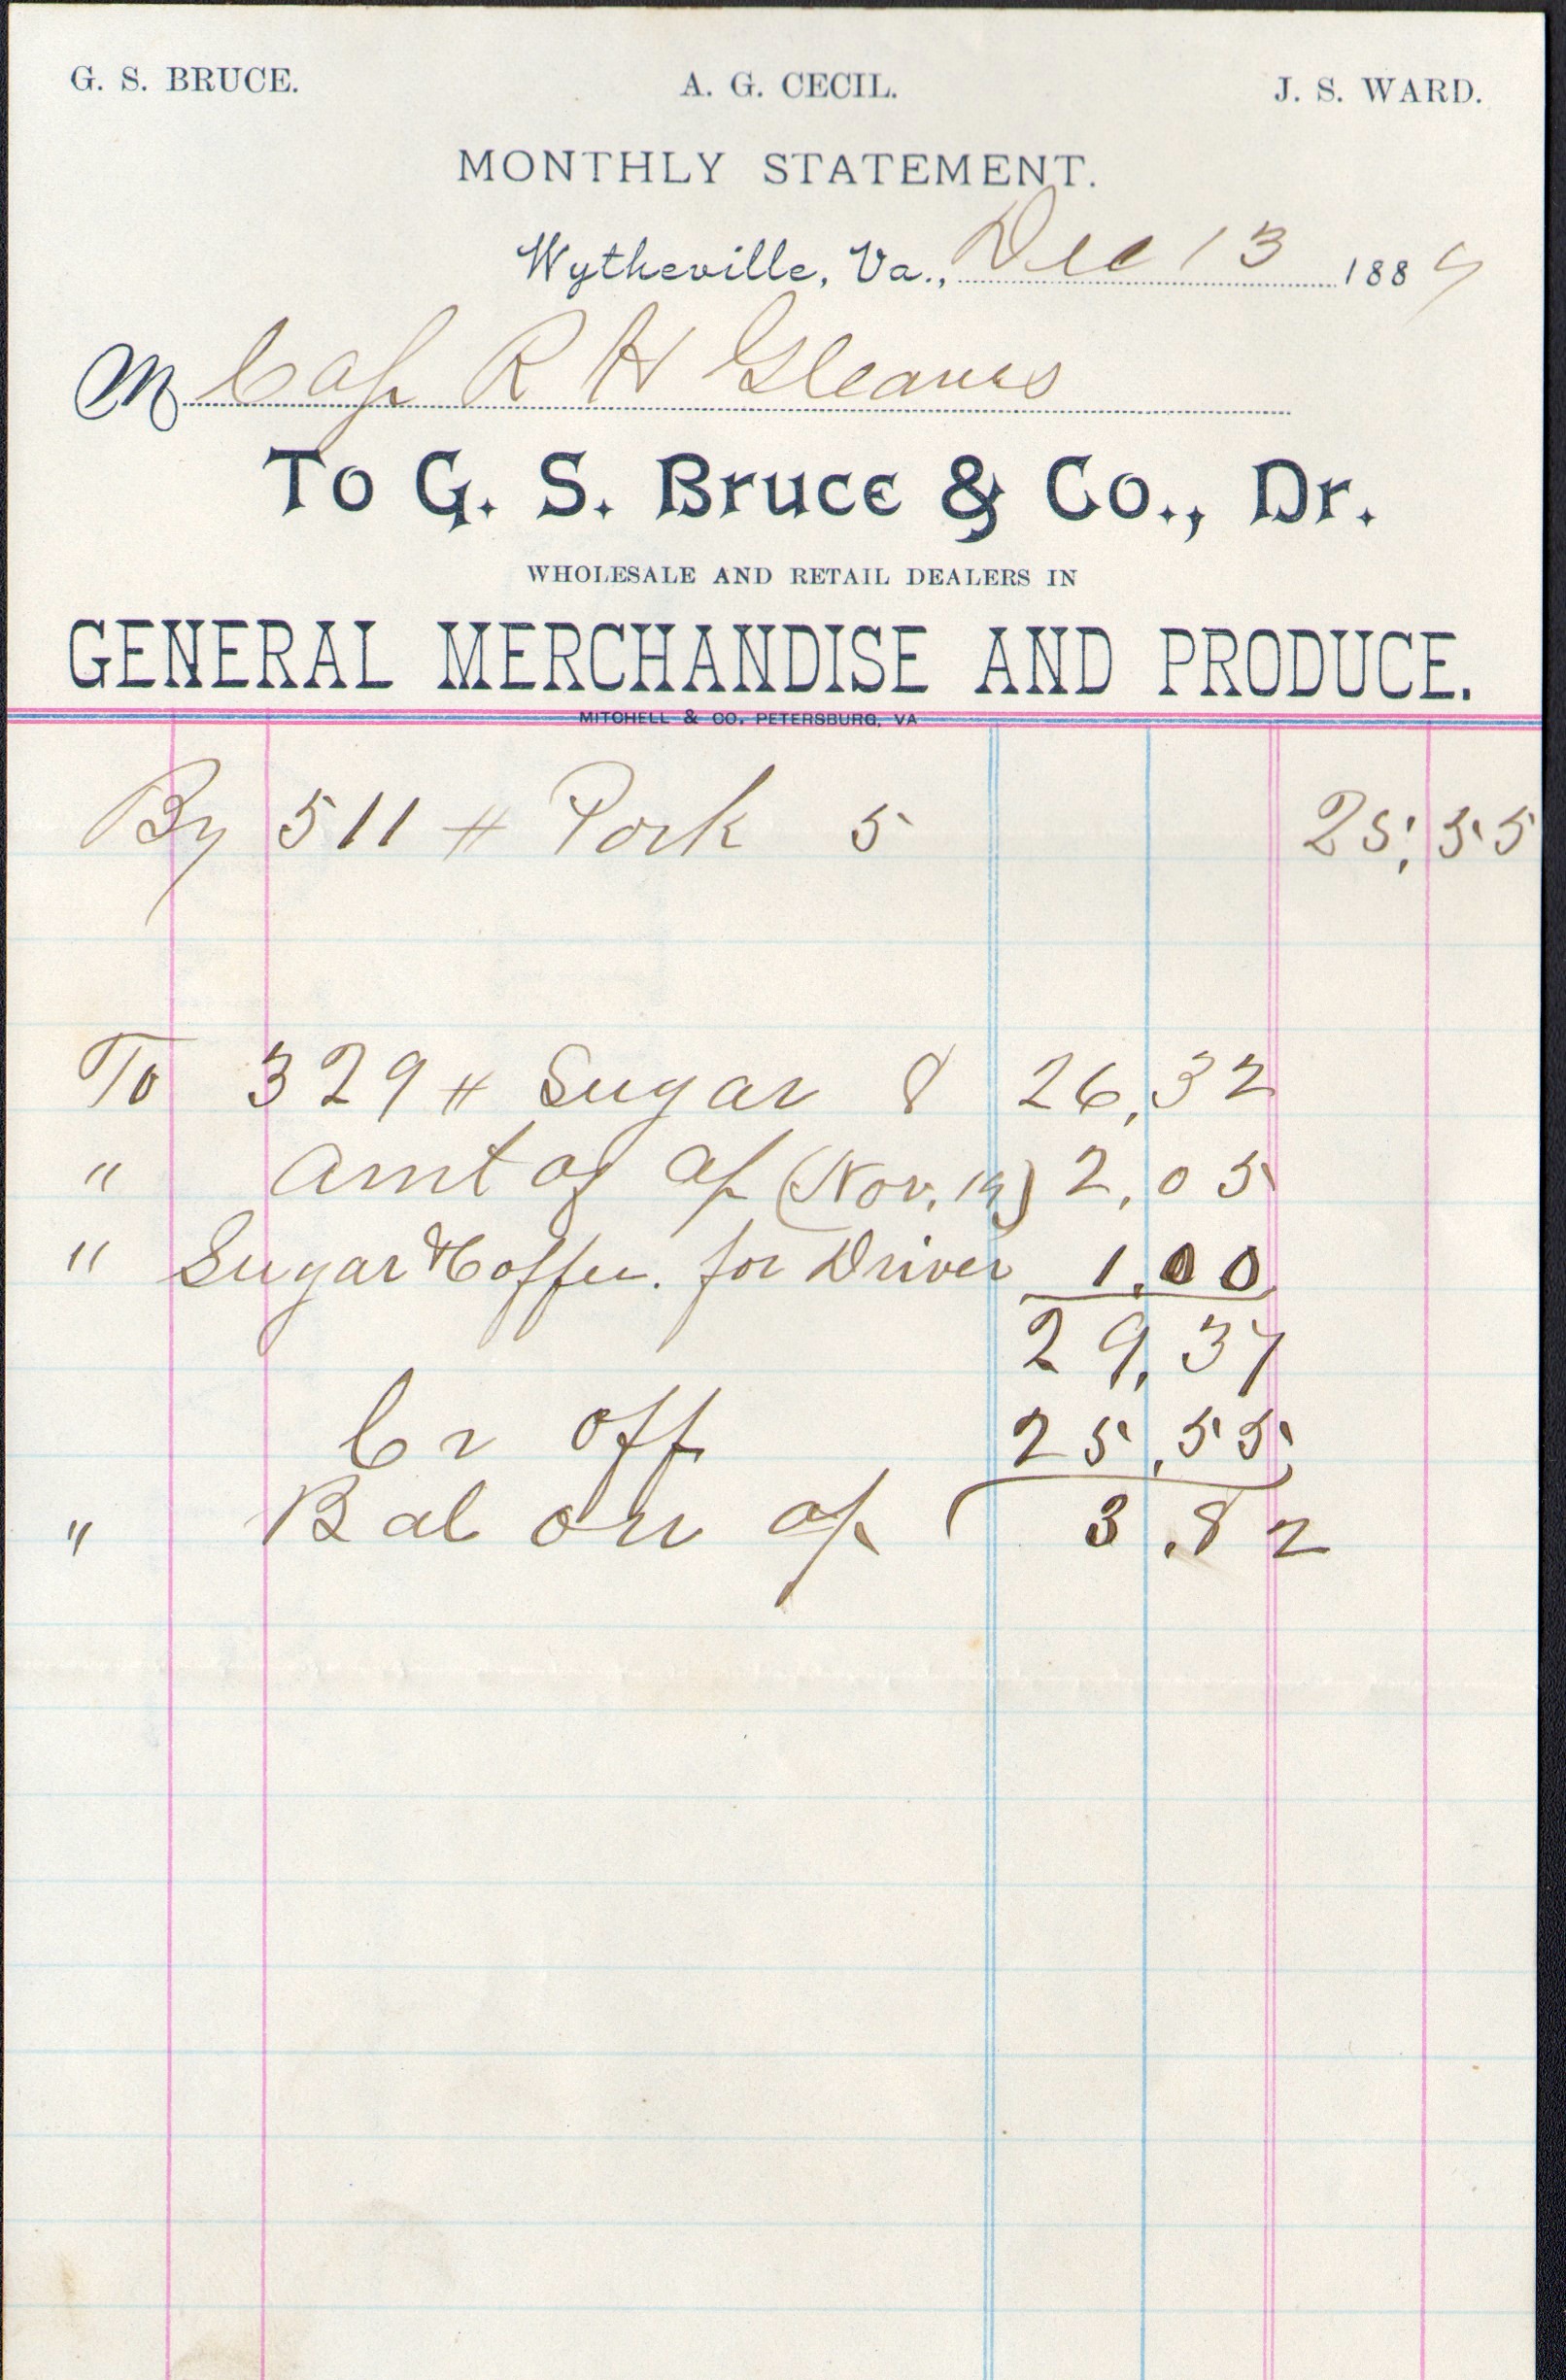 G. S. BRUCE. A. G. CECIL. J. S. WARD.
MONTHLY STATEMENT.
Wytheville, Va., Dec 13 188
M Cap R H Gleaves
To G. S. Bruce & Co., Dr.
WHOLESALE AND RETAIL DEALERS IN
GENERAL MERCHANDISE AND PRODUCE.
MITCHELL & CO. PETERSBURG, VA
By 511 # Pork 5 25,55
To 329 # Sugar 8 26,32
" Amt of a/c (Nov, 14) 2,05
" Sugar & Coffee. for Driver 1.00
29,37
Cr off 25,55
" Bal on a/c 3.82